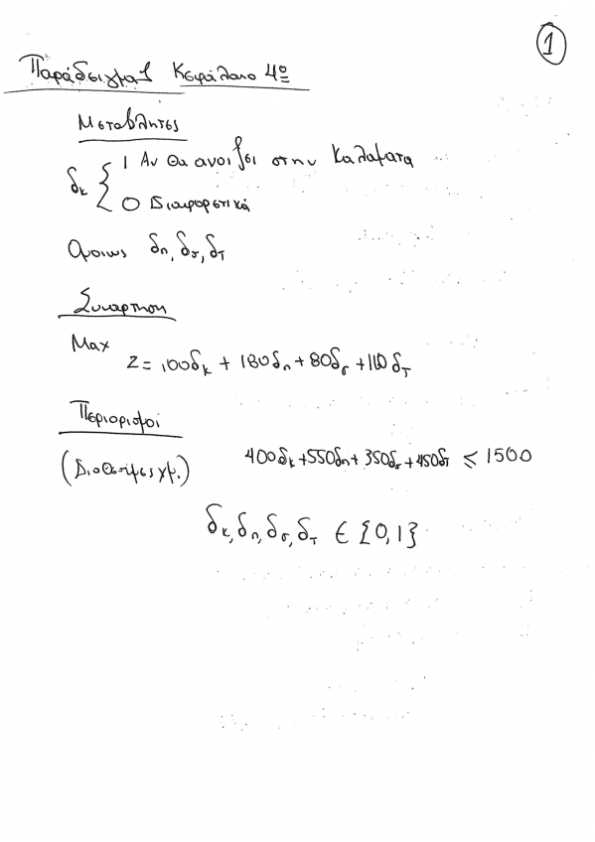 1
Παράδειγμα 1 Κεφάλαιο 4º
Μεταβλητες
δκ { 1 Αν θα ανοιξει στην Καλαματα
0 Διαφορετικά
Ομοιως δπ, δσ, δτ
Συναρτηση
Max
Z = 100δκ + 180δπ + 80δσ + 110δτ
Περιορισμοί
(Διαθεσιμες χμ.) 400δκ + 550δπ + 350δσ + 450δτ ≤ 1500
δκ, δπ, δσ, δτ ∈ {0,1}